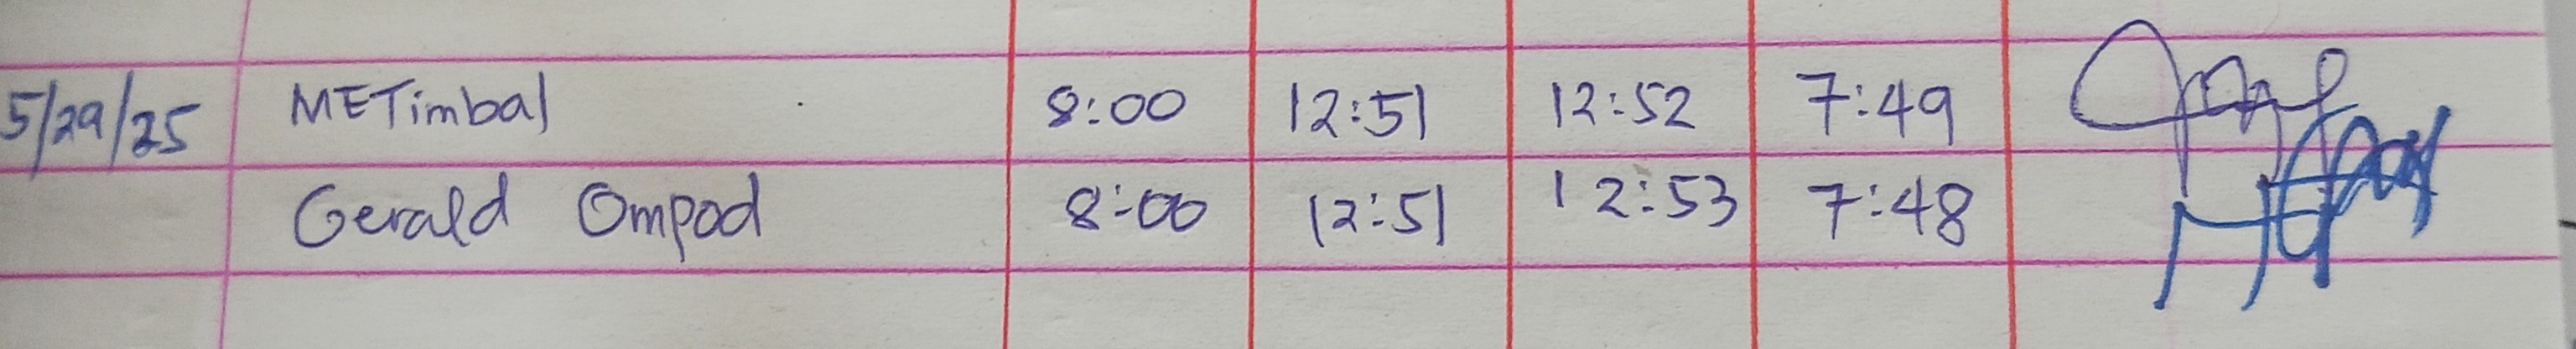 5/29/25 METimbal 8:00 12:51 12:52 7:49
Gerald Ompod 8:00 12:51 12:53 7:48